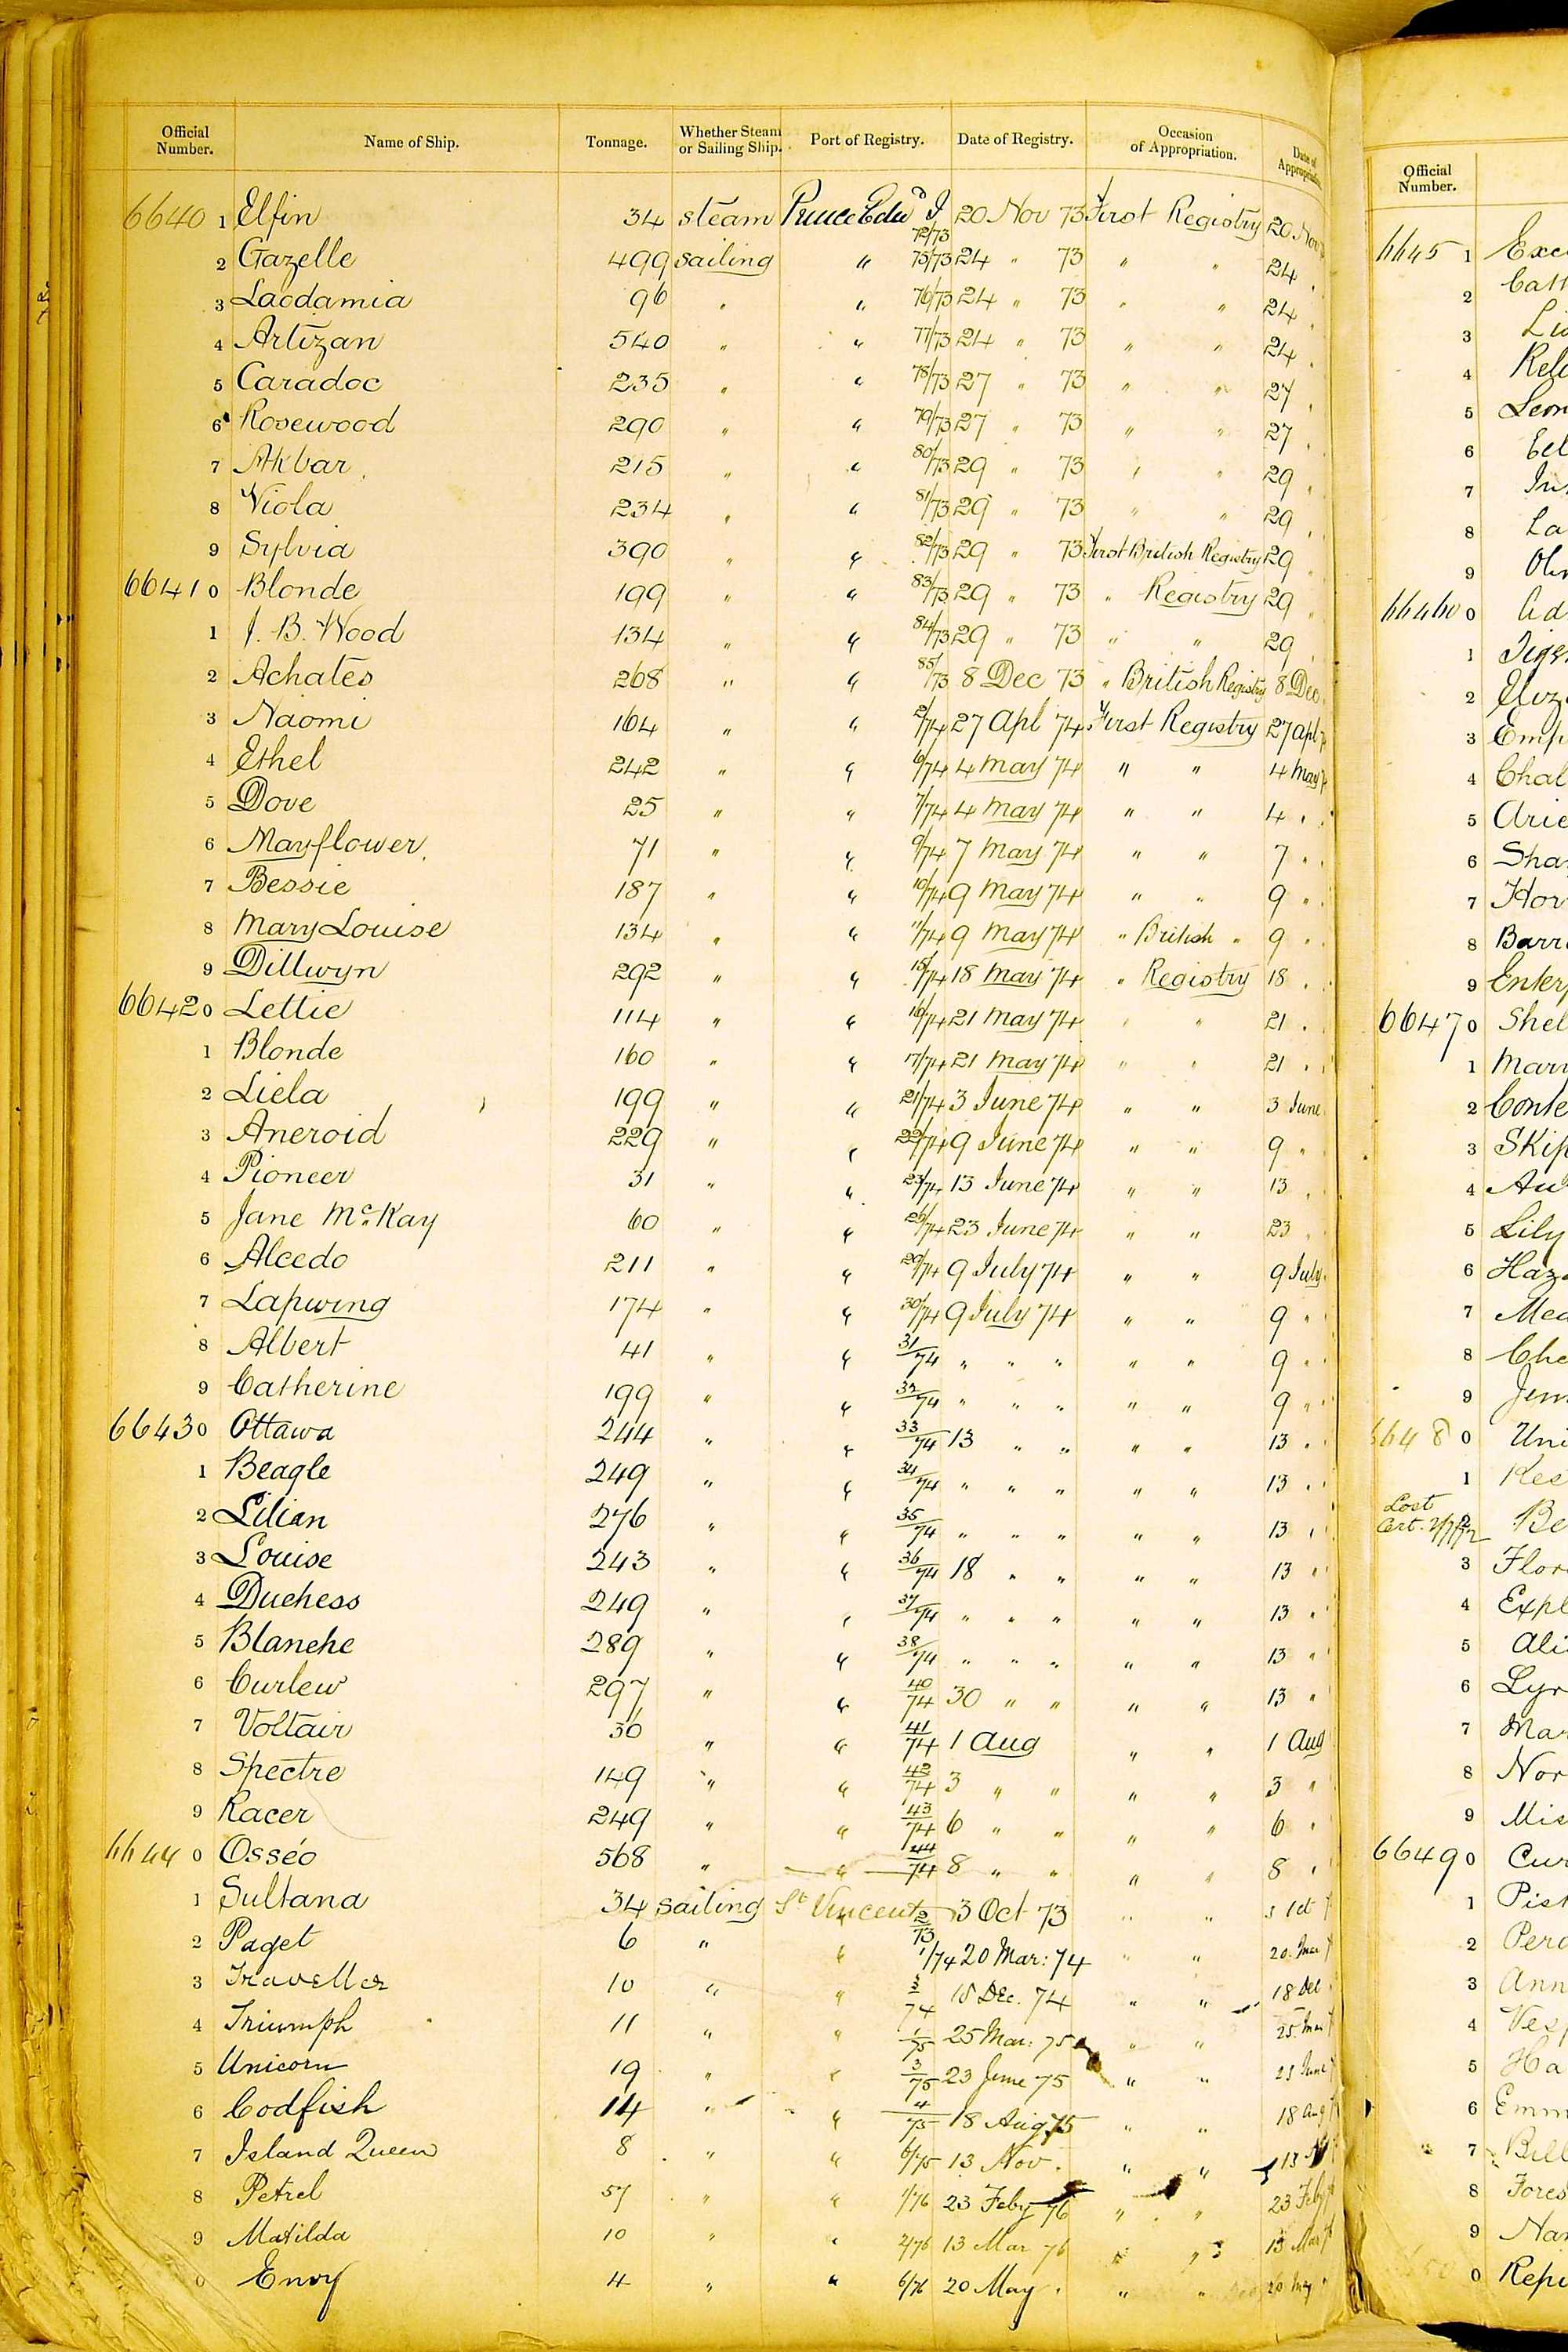 Official Number. Name of Ship. Tonnage. Whether Steam or Sailing Ship. Port of Registry. Date of Registry. Occasion of Appropriation. Date of Appropriation.
6640 1 Elfin 34 steam Prince Edwd I 72/73 20 Nov 73 First Registry 20 Nov
2 Gazelle 499 sailing " 75/73 24 " 73 " " 24 "
3 Laodamia 96 " " 76/73 24 " 73 " " 24 "
4 Artizan 540 " " 77/73 24 " 73 " " 24 "
5 Caradoc 235 " " 78/73 27 " 73 " " 27 "
6 Rosewood 290 " " 79/73 27 " 73 " " 27 "
7 Akbar 215 " " 80/73 29 " 73 " " 29 "
8 Viola 234 " " 81/73 29 " 73 " " 29 "
9 Sylvia 390 " " 82/73 29 " 73 First British Registry 29 "
6641 0 Blonde 199 " " 83/73 29 " 73 " Registry 29 "
1 J. B. Wood 134 " " 84/73 29 " 73 " " 29 "
2 Achates 268 " " 85/73 8 Dec 73 " British Registry 8 Dec
3 Naomi 164 " " 2/74 27 Apl 74 First Registry 27 Apl
4 Ethel 242 " " 6/74 4 May 74 " " 4 May
5 Dove 25 " " 7/74 4 May 74 " " 4 " "
6 Mayflower 71 " " 9/74 7 May 74 " " 7 " "
7 Bessie 187 " " 10/74 9 May 74 " " 9 " "
8 Mary Louise 134 " " 11/74 9 May 74 " British " 9 " "
9 Dillwyn 292 " " 15/74 18 May 74 " Registry 18 " "
6642 0 Lettie 114 " " 16/74 21 May 74 " " 21 " "
1 Blonde 160 " " 17/74 21 May 74 " " 21 " "
2 Liela 199 " " 21/74 3 June 74 " " 3 June
3 Aneroid 229 " " 22/74 9 June 74 " " 9 "
4 Pioneer 31 " " 23/74 13 June 74 " " 13 "
5 Jane McKay 60 " " 26/74 23 June 74 " " 23 "
6 Alcedo 211 " " 29/74 9 July 74 " " 9 July
7 Lapwing 174 " " 30/74 9 July 74 " " 9 " "
8 Albert 41 " " 31/74 " " " " " 9 " "
9 Catherine 199 " " 32/74 " " " " " 9 " "
6643 0 Ottawa 244 " " 33/74 13 " " " " 13 " "
1 Beagle 249 " " 34/74 " " " " " 13 " "
2 Lilian 276 " " 35/74 " " " " " 13 " "
3 Louise 243 " " 36/74 18 " " " " 13 " "
4 Duchess 249 " " 37/74 " " " " " 13 "
5 Blanche 289 " " 38/74 " " " " " 13 "
6 Curlew 297 " " 40/74 30 " " " " 13 "
7 Voltair 36 " " 41/74 1 Aug " " 1 Aug
8 Spectre 149 " " 42/74 3 " " " " 3 "
9 Racer 249 " " 43/74 6 " " " " 6 "
6644 0 Osséo 568 " " 44/74 8 " " " " 8 "
1 Sultana 34 sailing St Vincent 2/73 3 Oct 73 " " 3 Oct
2 Paget 6 " " 1/74 20 Mar: 74 " " 20 Mar
3 Traveller 10 " " 3/74 18 Dec. 74 " " 18 Dec
4 Triumph 11 " " 1/75 25 Mar: 75 " " 25 Mar
5 Unicorn 19 " " 3/75 23 June 75 " " 23 June
6 Codfish 14 " " 4/75 18 Aug 75 " " 18 Aug
7 Island Queen 8 " " 6/75 13 Nov. " " 13
8 Petrel 57 " " 1/76 23 Feby 76 " " 23 Feby
9 Matilda 10 " " 2/76 13 Mar 76 " " 13 Mar
0 Envy 4 " " 6/76 20 May " " " 20 May
Official Number.
6645 1 Exc
2 Catt
3 Li
4 Reli
5 Leon
6 Ecl
7 In
8 La
9
66460 0 Ad
1 Tige
2 Eliz
3 Emp
4 Chal
5 Arie
6 Sha
7 Hor
8 Barr
9 Enter
6647 0 Shel
1 Mar
2 Conte
3 Skip
4 Au
5 Lily
6 Haz
7 Med
8 Che
9 Jem
6648 0 Uni
1 Res
Lost Cert. Be
3 Flor
4 Expl
5 Ali
6 Lyr
7 Mar
8 Nor
9 Mis
6649 0 Cur
1 Pist
2 Perc
3 Ann
4 Vesp
5 Ha
6 Emm
7 Bell
8 Fores
9 Nan
0 Repu